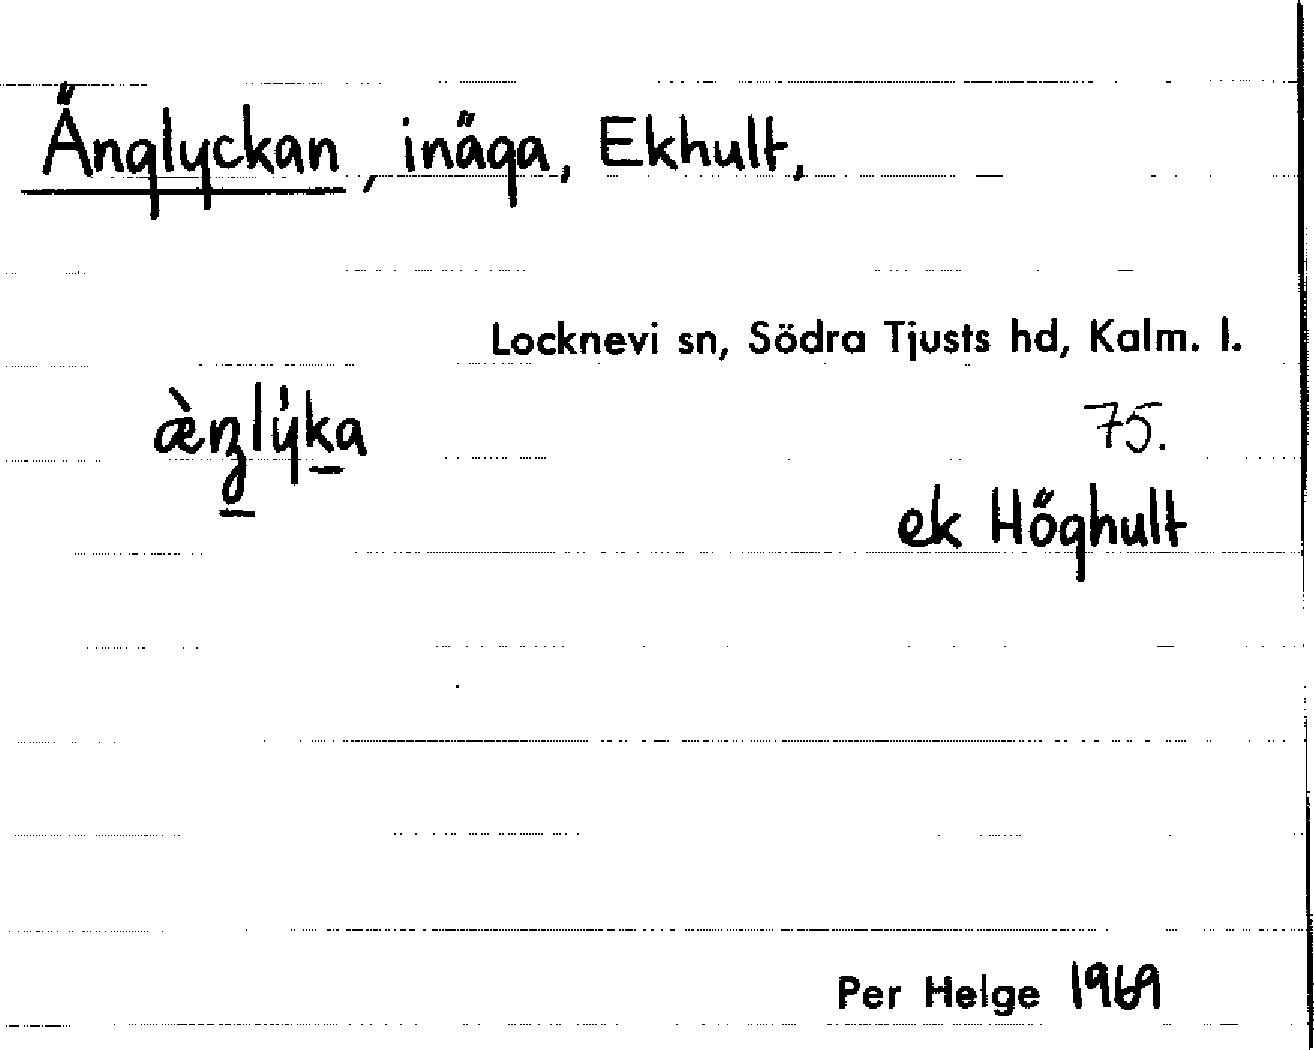 Änglyckan, inäga, Ekhult,
Locknevi sn, Södra Tjusts hd, Kalm. l.
75.
ek Höghult
Per Helge 1969